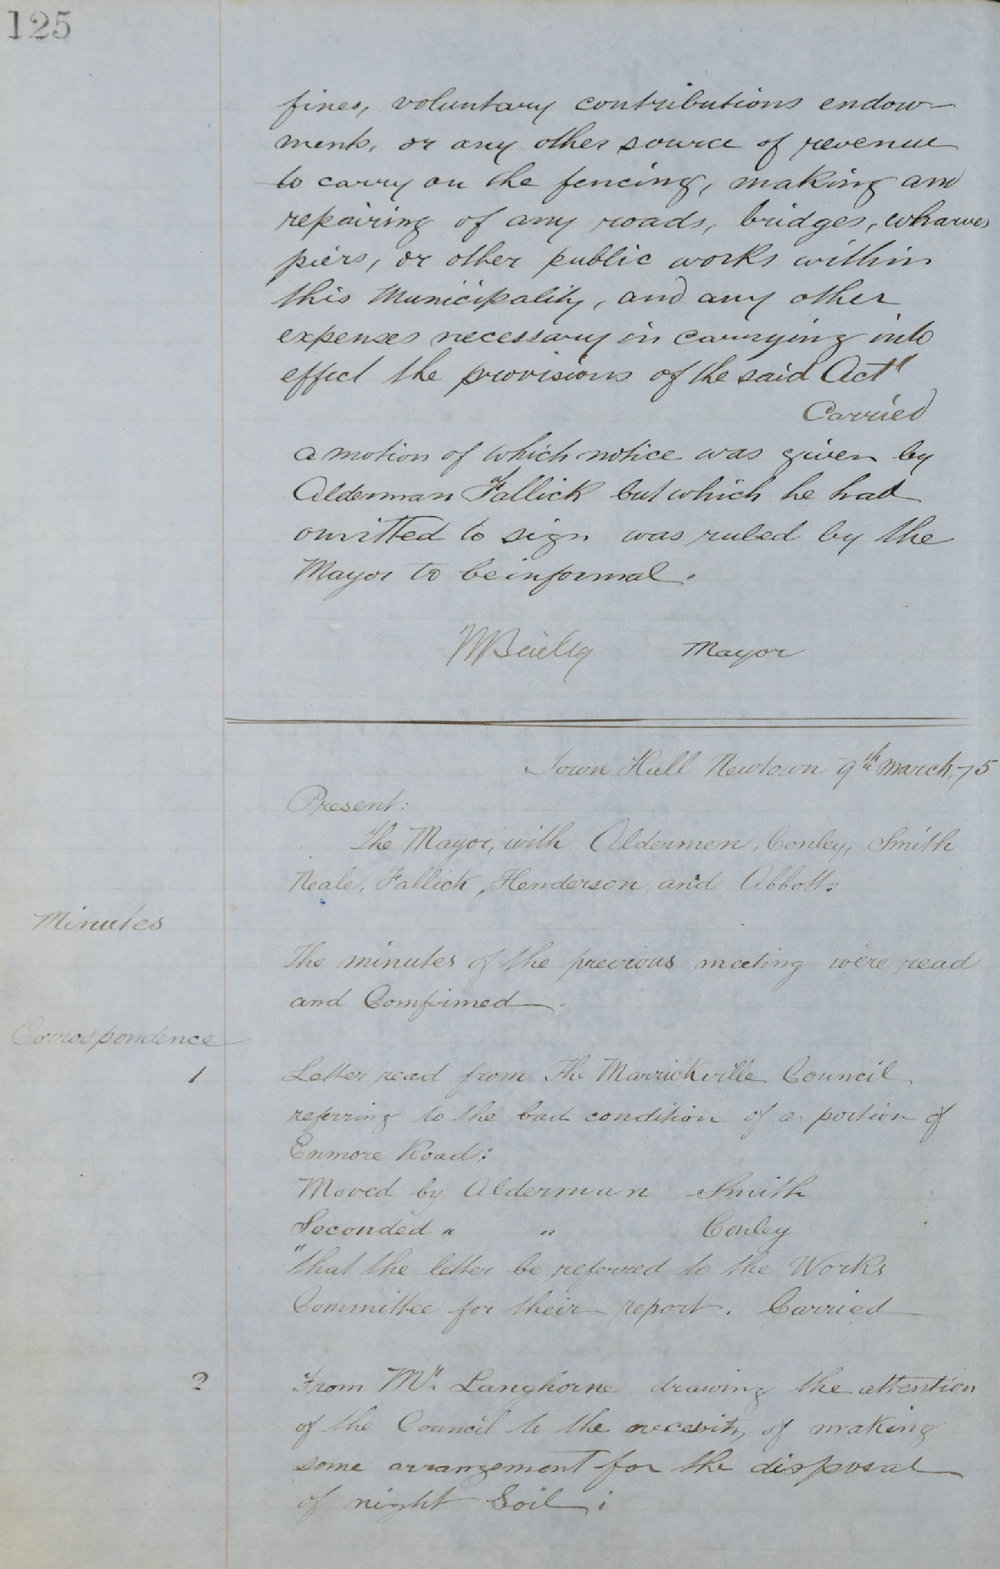 125
fines, voluntary contributions endow-
ments, or any other source of revenue
to carry on the fencing, making and
repairing of any roads, bridges, wharves
piers, or other public works within
this Municipality, and any other
expenses necessary in carrying into
effect the provisions of the said Act"
Carried
a motion of which notice was given by
Alderman Fallick but which he had
omitted to sign was ruled by the
Mayor to be informal.
Mayor
Town Hall Newtown 9th March, 75
Present:
The Mayor, with Aldermen, Conley, Smith
Neale, Fallick, Henderson, and Abbott.
Minutes
The minutes of the previous meeting were read
and Comfirmed.
Corrospondence
1 Letter read from The Marrickville Council
referring to the bad condition of a portion of
Enmore Road:
Moved by Alderman Smith
Seconded " " Conley
"that the letter be referred to the Works
Committee for their report. Carried
2 From Mr. Langhorne drawing the attention
of the Council to the necessity of making
some arrangement for the disposal
of night Soil: